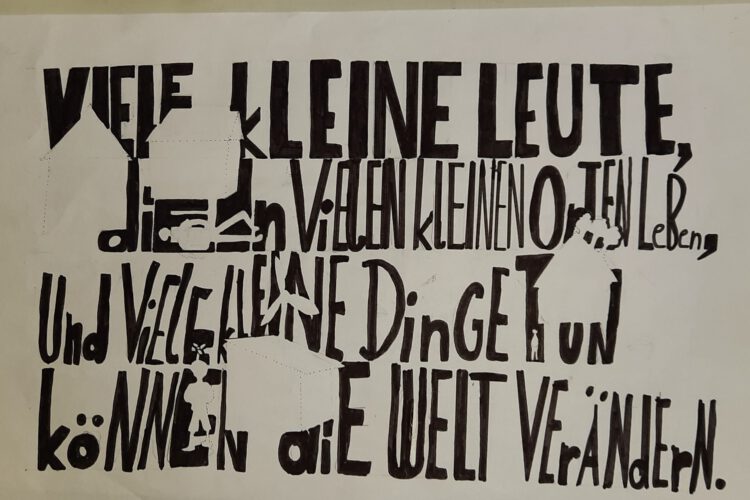 VIELE kLEINE LEUTE,
diE In ViELEN kLEINEN OrTEN LeBen,
Und ViELE kLEINE DinGE TUN
köNNEN diE WELT VerÄNderN.